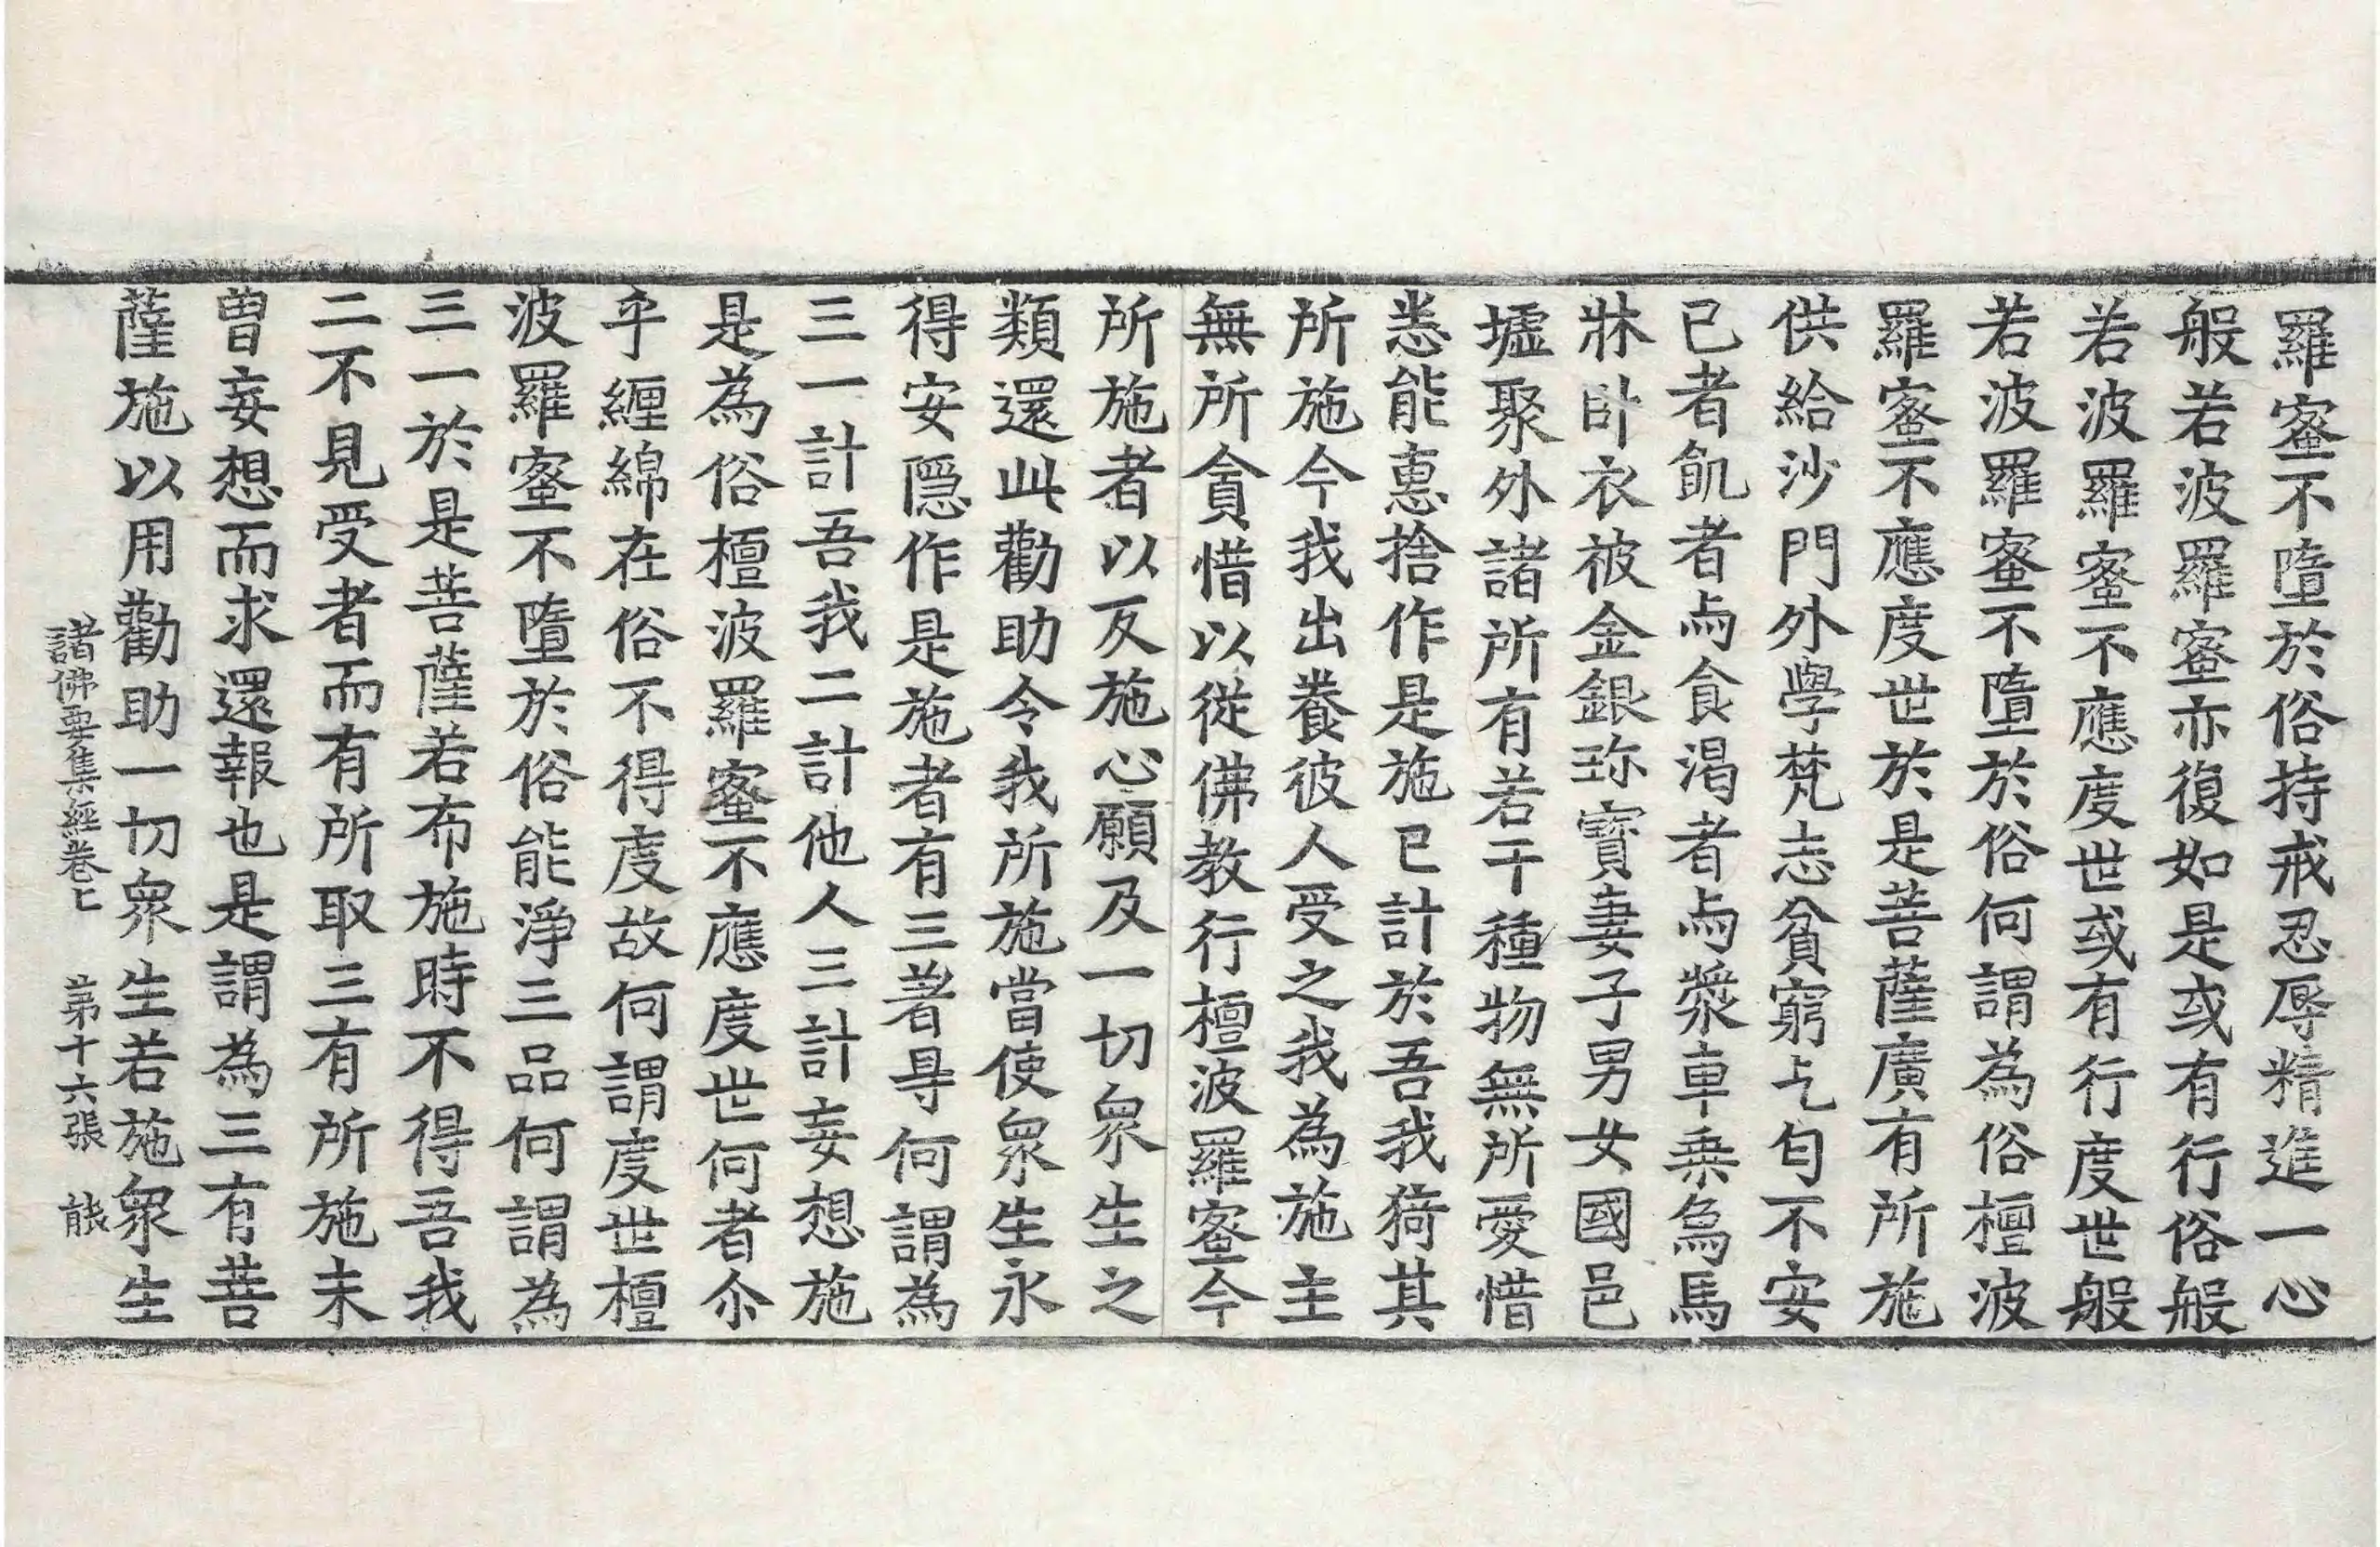 羅蜜不墮於俗持戒忍辱精進一心
般若波羅蜜亦復如是或有行俗般
若波羅蜜不應度世或有行度世般
若波羅蜜不墮於俗何謂為俗檀波
羅蜜不應度世於是菩薩廣有所施
供給沙門外學梵志貧窮乞匃不安
已者飢者与食渴者与漿車乗烏馬
牀卧衣被金銀珎寶妻子男女國邑
墟聚外諸所有若干種物無所愛惜
恙能惠捨作是施已計於吾我猗其
所施今我出養彼人受之我為施主
無所貪惜以從佛教行檀波羅蜜今
所施者以反施心願及一切衆生之
類還此勸助令我所施當使衆生永
得安隱作是施者有三著㝵何謂為
三一計吾我二計他人三計妄想施
是為俗檀波羅蜜不應度世何者尒
乎纏綿在俗不得度故何謂度世檀
波羅蜜不墮於俗能淨三品何謂為
三一於是菩薩若布施時不得吾我
二不見受者而有所取三有所施未
曽妄想而求還報也是謂為三有菩
薩施以用勸助一切衆生若施衆生
諸佛要集經卷上 苐十六張 𦙶